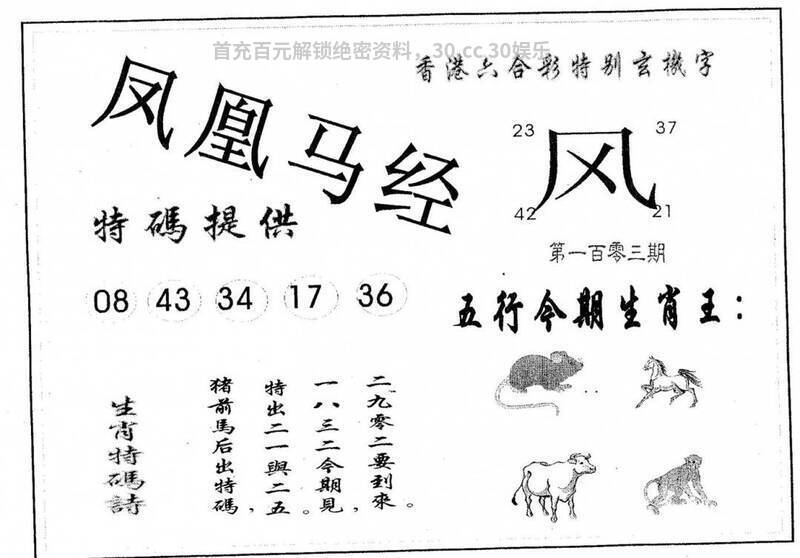 首充百元解锁绝密资料，30.cc 30娱乐
香港六合彩特别玄機字
凤凰马经
23
37
风
42
21
特碼提供
第一百零三期
08 43 34 17 36
五行今期生肖王：
二九零二要到來。
一八三二今期見，
特出二一與二五。
猪前馬后出特碼，
生肖特碼詩